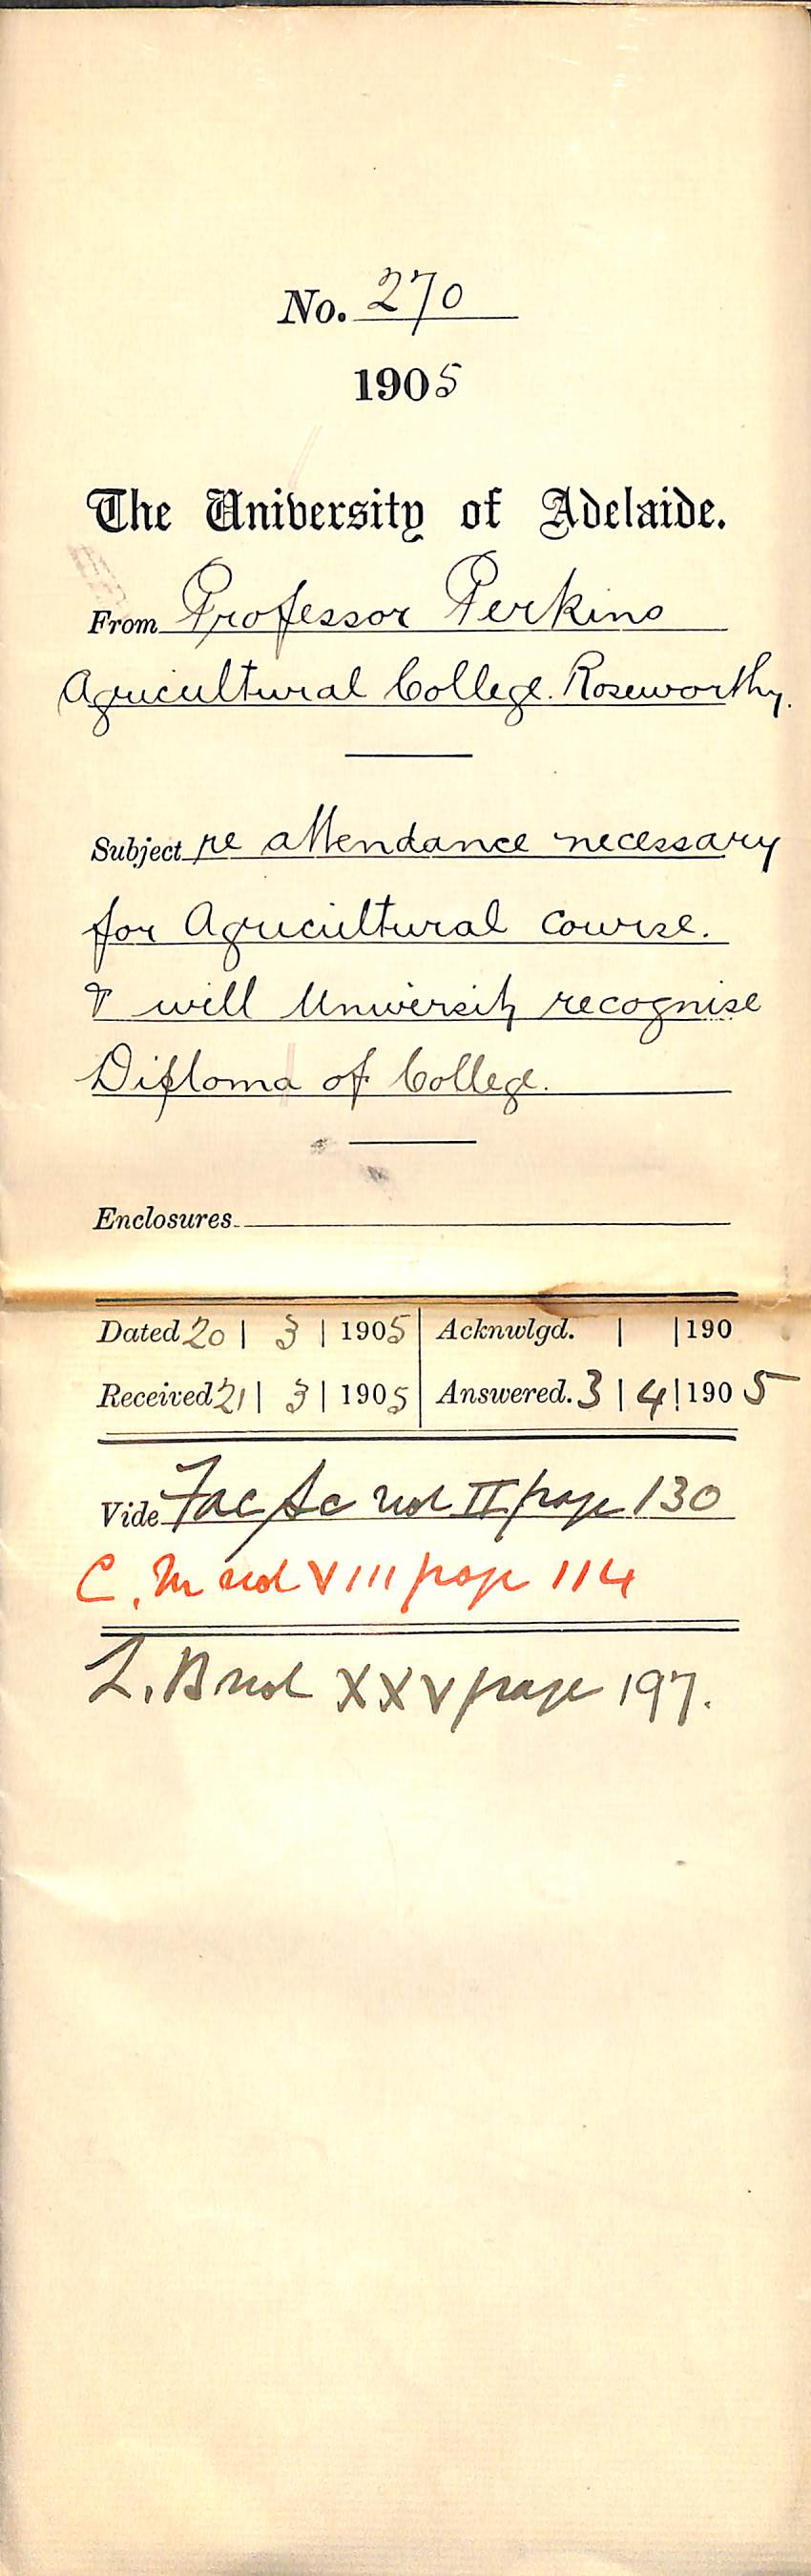 No. 270
1905
The University of Adelaide.
From Professor Perkins
Agricultural College. Roseworthy.
Subject re attendance necessary
for Agricultural course.
& will University recognise
Diploma of College.
Enclosures
Dated 20 | 3 | 1905 Acknwlgd. | | 190
Received 21 | 3 | 1905 Answered. 3 | 4 | 1905
Vide Fac Sc vol II page 130
C. M vol VIII page 114
L. B vol XXV page 197.